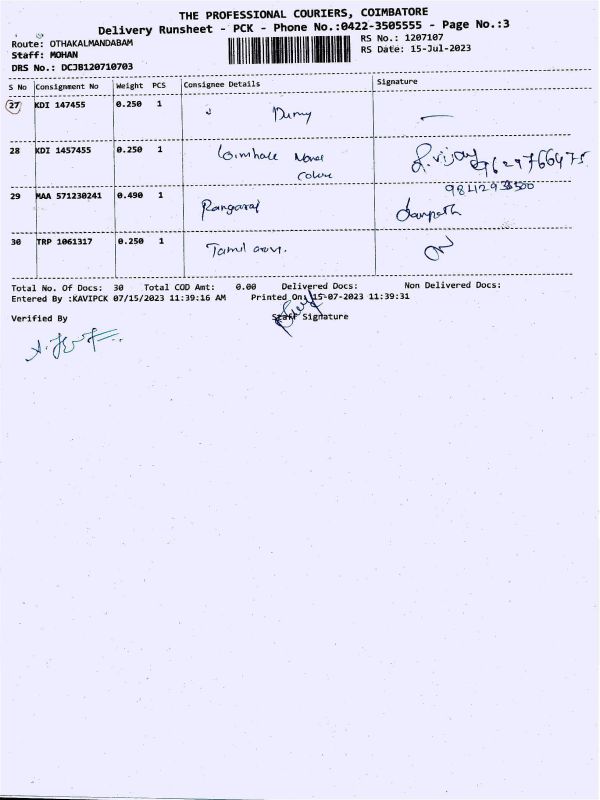 THE PROFESSIONAL COURIERS, COIMBATORE
Delivery Runsheet - PCK - Phone No.:0422-3505555 - Page No.:3
Route: OTHAKALMANDABAM
RS No.: 1207107
Staff: MOHAN
RS Date: 15-Jul-2023
DRS No.: DCJB120710703
S No Consignment No Weight PCS Consignee Details Signature
27 KDI 147455 0.250 1
28 KDI 1457455 0.250 1 R. vijay 9629766475
29 MAA 571230241 0.490 1 Rangaraj
30 TRP 1061317 0.250 1 Tamil
Total No. Of Docs: 30 Total COD Amt: 0.00 Delivered Docs: Non Delivered Docs:
Entered By :KAVIPCK 07/15/2023 11:39:16 AM Printed On: 15-07-2023 11:39:31
Verified By Staff Signature